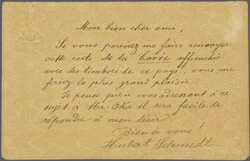 Mon bien cher ami,
Si vous pouvez me faire renvoyer
cette carte de la Corée affranchie
avec des timbres de ce pays, vous me
feriez le plus grand plaisir.
Je pense qu'en vous adressant à ce
sujet à Mr. il sera facile de
répondre à mon désir.
Bien à vous!
Hubert Schmidt